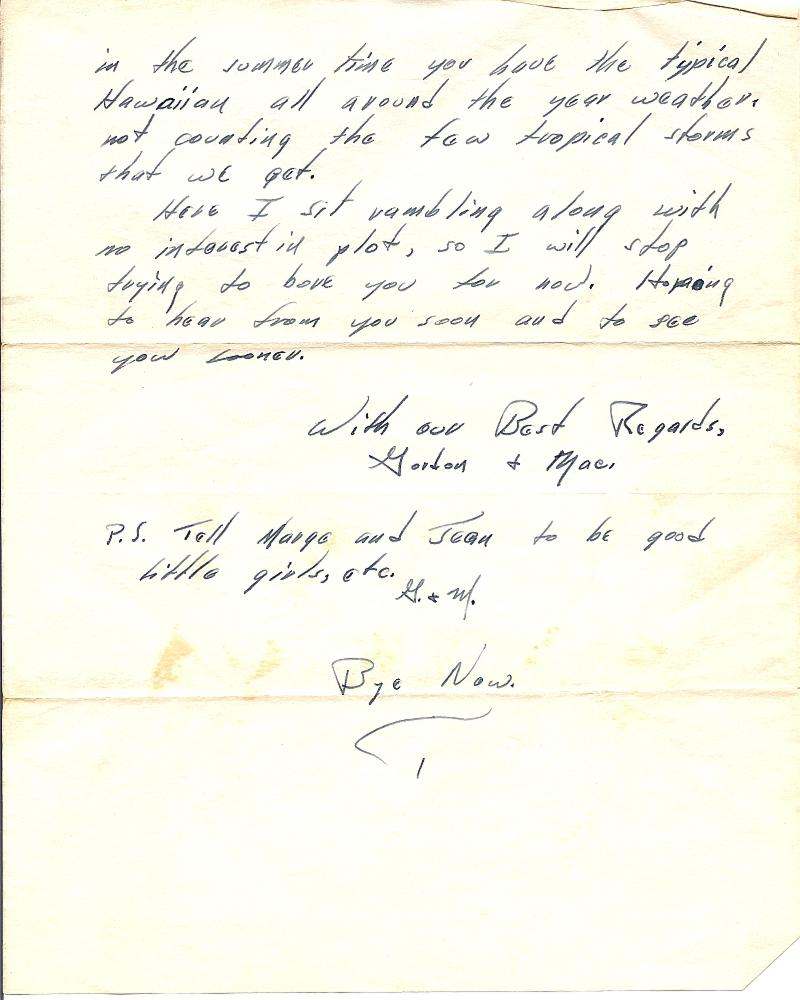 in the summer time you have the typical
Hawaiian all around the year weather,
not counting the few tropical storms
that we get.
Here I sit rambling along with
no interest in plot, so I will stop
trying to bore you for now. Hoping
to hear from you soon and to see
you sooner.
With our Best Regards,
Gordon & Mae.
P.S. Tell Marge and Jean to be good
little girls, etc.
G. & M.
Bye Now.